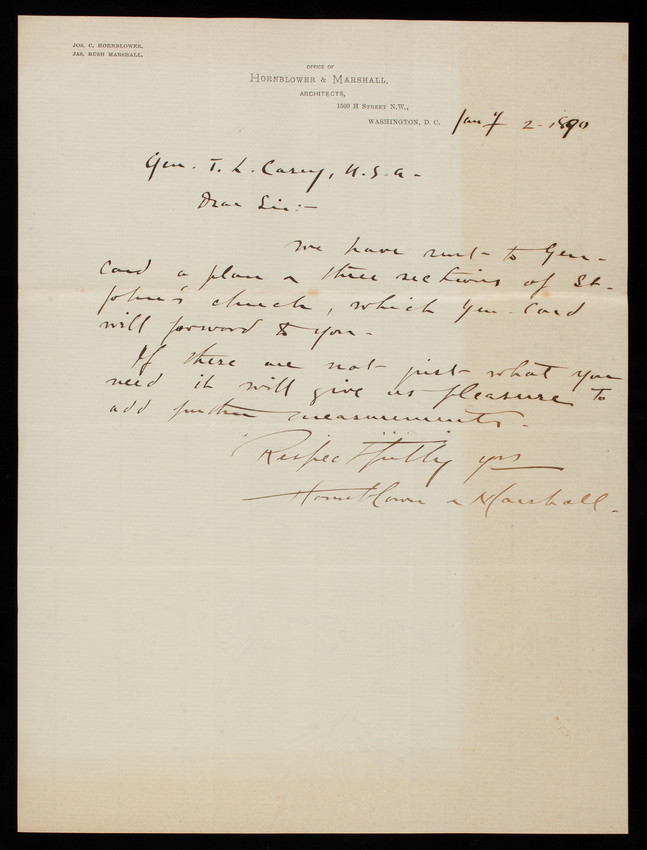 JOS. C. HORNBLOWER.
JAS. RUSH MARSHALL.
OFFICE OF
HORNBLOWER & MARSHALL,
ARCHITECTS,
1509 H STREET N.W.,
WASHINGTON, D. C.
Jany 2 - 1890
Gen. T. L. Casey, U.S.A -
Dear Sir: -
We have sent to Gen -
Card a plan & three sections of St -
John's church, which Gen. Card
will forward to you -
If these are not just what you
need it will give us pleasure to
add further measurements -
Respectfully yrs
Hornblower & Marshall -